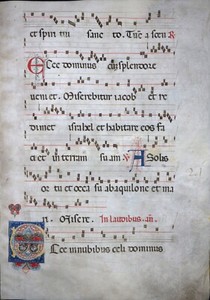 et spiritui sancto. Tūc ascen
Ecce dominus cū splendore
veniet. Miserebitur iacob et re
dimet israhel et habitare eos fa
ciet in terram suam. A solis
ortu et occasu ab aquilone et ma
ri. Misere. In laudibus. an.
Ecce in nubibus celi dominus